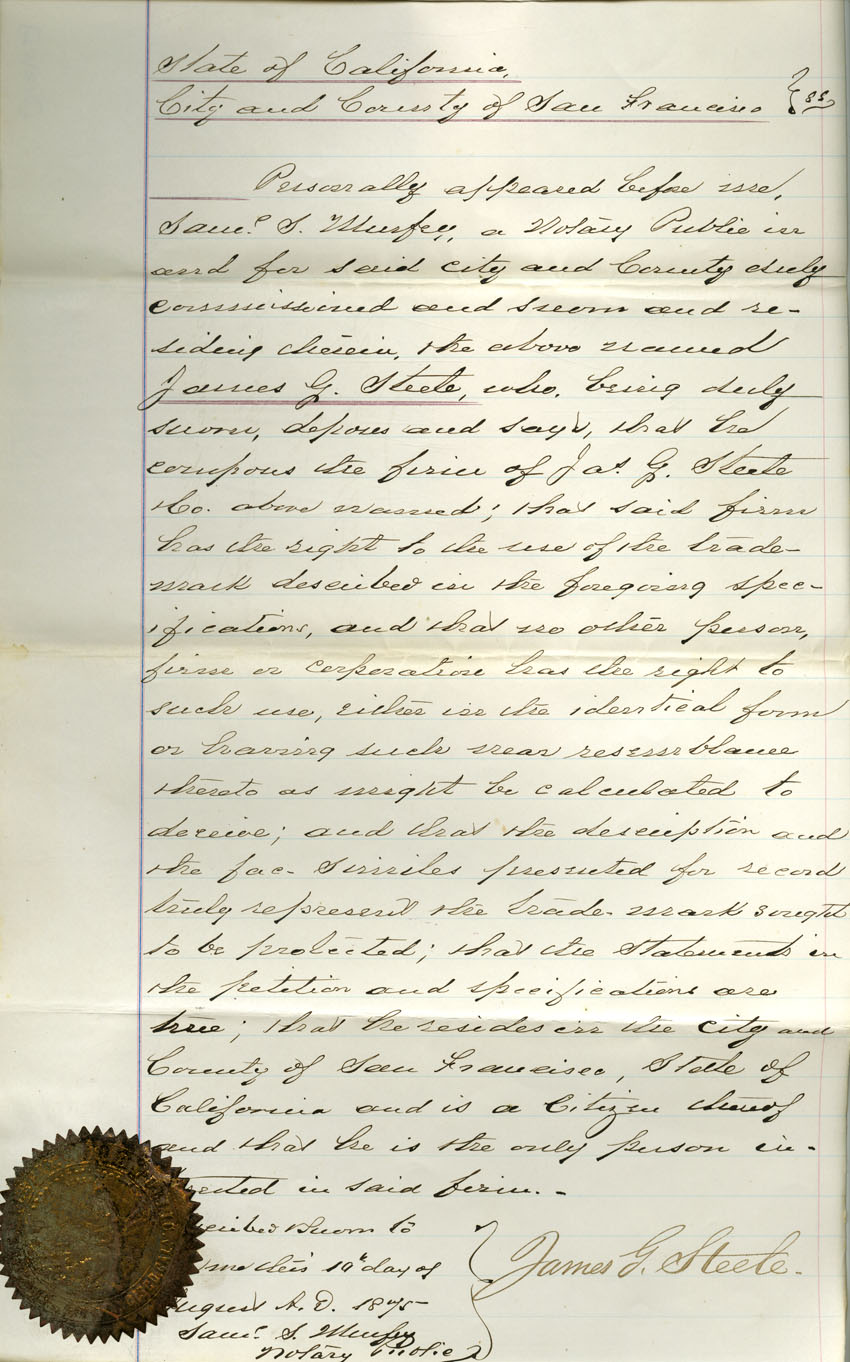 State of California,
City and County of San Francisco } ss
Personally appeared before me,
Saml. S. Murfey, a Notary Public in
and for said city and County duly
commissioned and sworn and re-
siding therein, the above named
James G. Steele, who, being duly
sworn, deposes and says, that he
composes the firm of Jas. G. Steele
& Co. above named; that said firm
has the right to the use of the trade-
mark described in the foregoing spec-
ifications, and that no other person,
firm or corporation has the right to
such use, either in the identical form
or having such near resemblance
thereto as might be calculated to
deceive; and that the description and
the fac-similes presented for record
truly represent the trade-mark sought
to be protected; that the Statements in
the petition and specifications are
true; that he resides in the city and
County of San Francisco, State of
California and is a Citizen thereof
and that he is the only person in-
rested in said firm.-
cribed & sworn to
me this 19th day of
ugust A.D. 1875-
Saml. S. Murfey
Notary Public
James G. Steele.